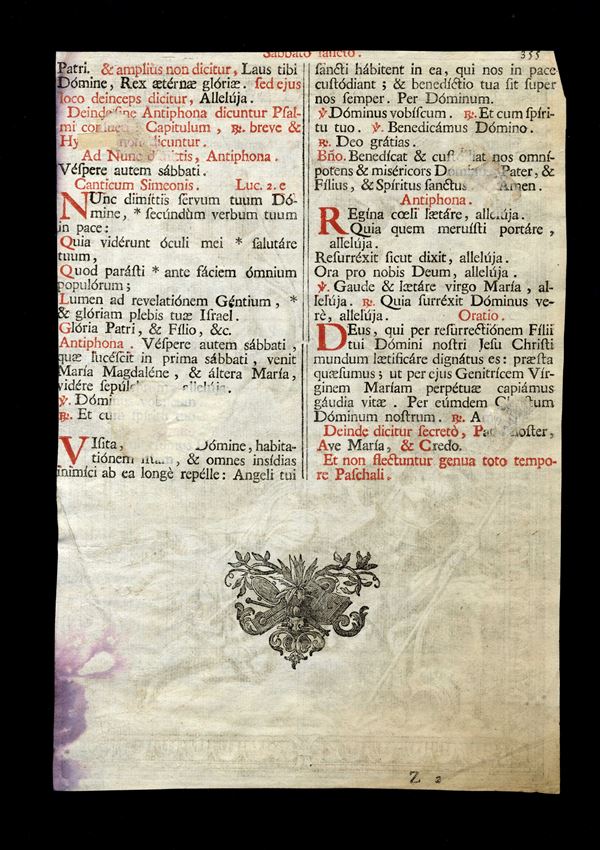 Sabbato sancto.
355
Patri. & ampliùs non dicitur, Laus tibi
Dómine, Rex ætérnæ glóriæ. sed ejus
loco deinceps dicitur, Allelúja.
Deinde sine Antiphona dicuntur Psal-
mi consueti: Capitulum, ℟. breve &
Hy non dicuntur.
Ad Nunc dimittis, Antiphona.
Véspere autem sábbati.
Canticum Simeonis. Luc. 2. e
NUnc dimíttis servum tuum Dó-
mine, * secúndùm verbum tuum
in pace:
Quia vidérunt óculi mei * salutáre
tuum,
Quod parásti * ante fáciem ómnium
populórum;
Lumen ad revelatiónem Géntium, *
& glóriam plebis tuæ Israel.
Glória Patri, & Fílio, &c.
Antiphona. Véspere autem sábbati,
quæ lucéscit in prima sábbati, venit
María Magdaléne, & áltera María,
vidére sepúl allelúja.
℣. Dómi
℟. Et cum
VIsita, Dómine, habita-
tiónem istam, & omnes insídias
inimíci ab ea longè repélle: Angeli tui
sancti hábitent in ea, qui nos in pace
custódiant; & benedíctio tua sit super
nos semper. Per Dóminum.
℣. Dóminus vobíscum. ℟. Et cum spíri-
tu tuo. ℣. Benedicámus Dómino.
℟. Deo grátias.
Bño. Benedícat & custódiat nos omní-
potens & miséricors Dominus Pater, &
Fílius, & Spíritus sanctus. Amen.
Antiphona.
REgína cœli lætáre, allelúja.
Quia quem meruísti portáre,
allelúja.
Resurréxit sicut dixit, allelúja.
Ora pro nobis Deum, allelúja.
℣. Gaude & lætáre virgo María, al-
lelúja. ℟. Quia surréxit Dóminus ve-
rè, allelúja. Oratio.
DEus, qui per resurrectiónem Fílii
tui Dómini nostri Jesu Christi
mundum lætificáre dignátus es: præsta
quæsumus; ut per ejus Genitrícem Vír-
ginem Maríam perpétuæ capiámus
gáudia vitæ. Per eúmdem Christum
Dóminum nostrum. ℟. A
Deinde dicitur secretò, Pater noster,
Ave María, & Credo.
Et non flectuntur genua toto tempo-
re Paschali.
Z 2